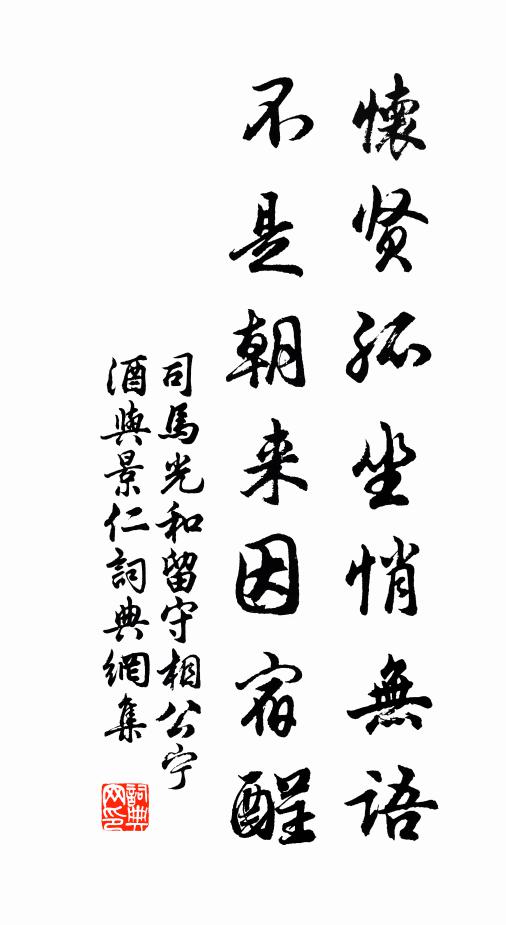 懷贤孤坐悄無語
不是朝来因宿醒
司馬光和留守相公宁
酒與景仁詞典網集
詞典
网印